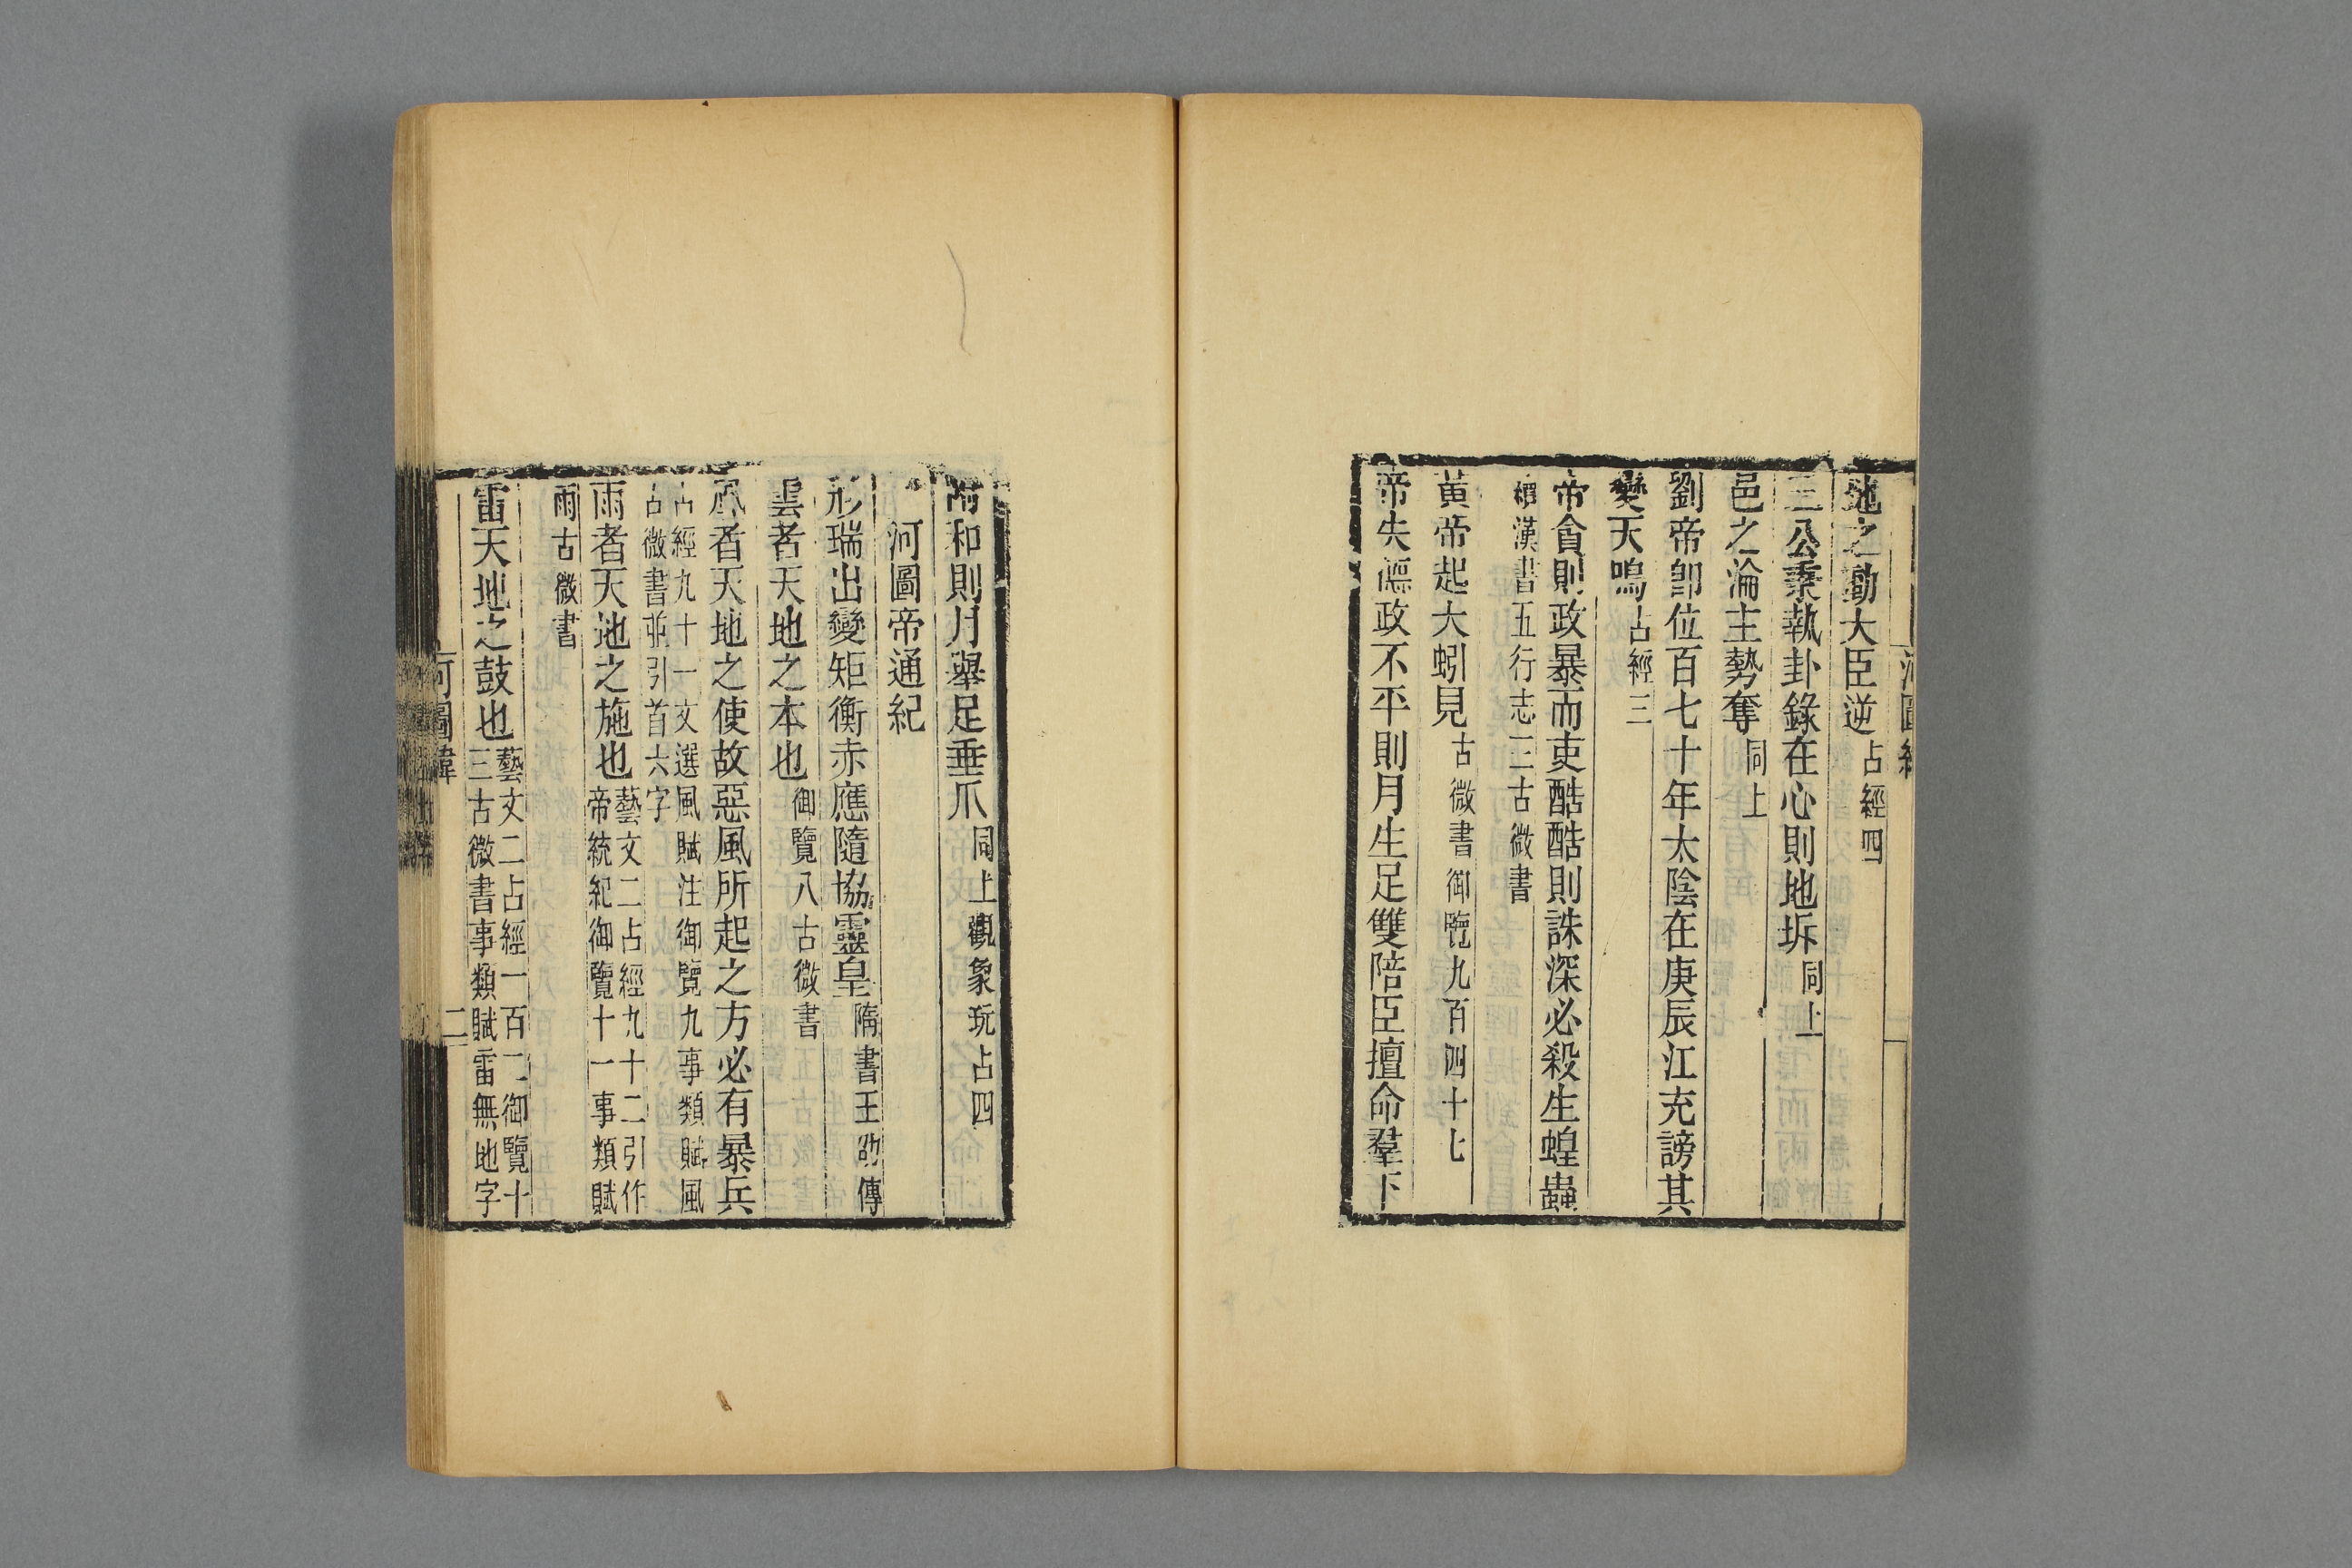 地之動大臣逆占經四
三公乘執卦錄在心則地坼同上
邑之淪主勢奪同上
劉帝卽位百七十年太陰在庚辰江充謗其
變天鳴占經三
帝貪則政暴而吏酷酷則誅深必殺生蝗蟲
續漢書五行志三古微書
黃帝起大蚓見古微書御覽九百四十七
帝失德政不平則月生足雙陪臣擅命羣下
附和則月舉足垂爪同上觀象玩占四
河圖帝通紀
形瑞出變矩衡赤應隨協靈皇隋書王劭傳
雲者天地之本也御覽八古微書
風者天地之使故惡風所起之方必有暴兵
占經九十一文選風賦注御覽九事類賦風
古微書並引首六字
雨者天地之施也藝文二占經九十二引作
帝統紀御覽十一事類賦
雨古微書
雷天地之鼓也藝文二占經一百二御覽十
三古微書事類賦雷無地字
河圖緯
二